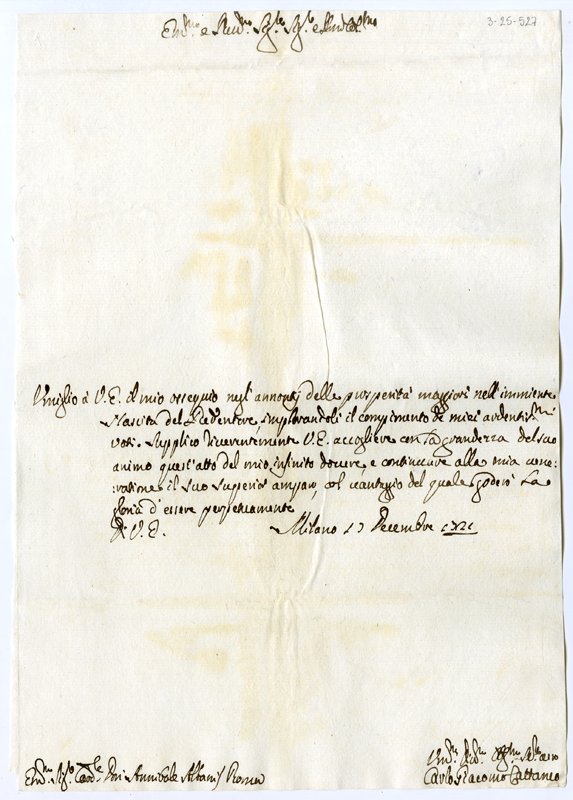 3-25-527
Em.mo e Rev.mo Sig.re Sig.r e Pron Col.mo
Umiglio à V. E. il mio ossequio negl' annonzj delle prosperità maggiori nell' imminente
Nascita del Redentore implorandoli il compimento de miei ardentis.mi
voti. Supplico riverentemente V. E. accogliere con la grandezza del suo
animo quest' atto del mio infinito dovere, e continuare alla mia vene:
:ratione il suo superior amparo, col vantaggio del quale goderò la
gloria d' essere perpetuamente
Di V. E. Milano 13 Decembre 1721
Em.mo Sig.r Card.le Don Annibale Albani / Roma
Um.mo Servo
Carlo Giacomo Cattaneo